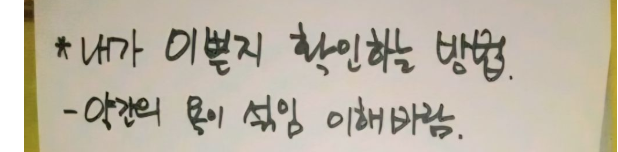 *내가 이쁜지 확인하는 방법.
-약간의 욕이 섞임 이해바람.